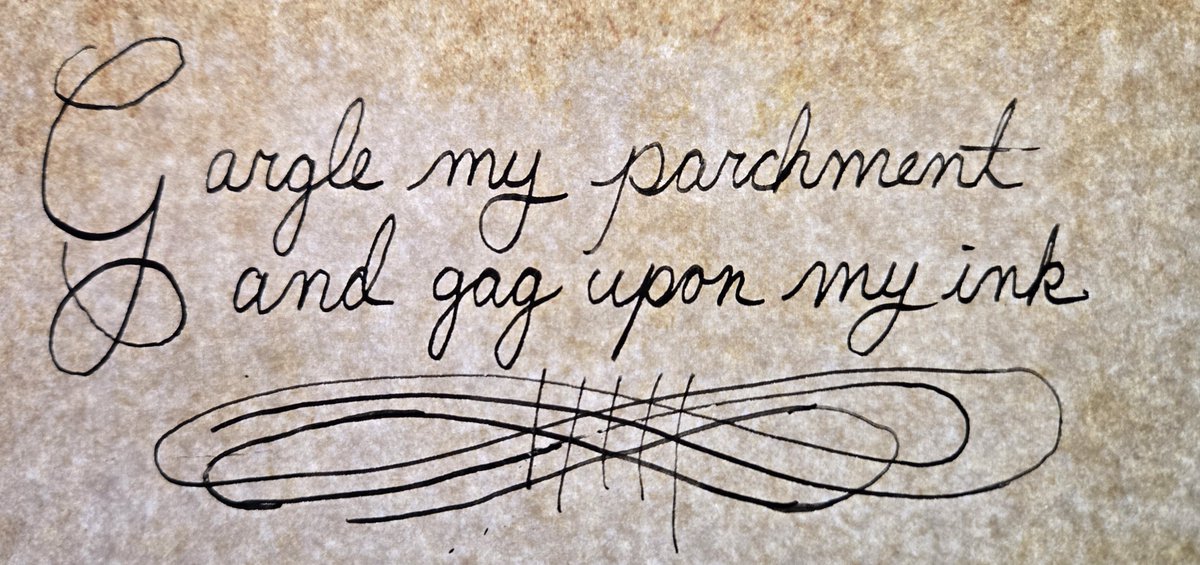 Gargle my parchment
and gag upon my ink